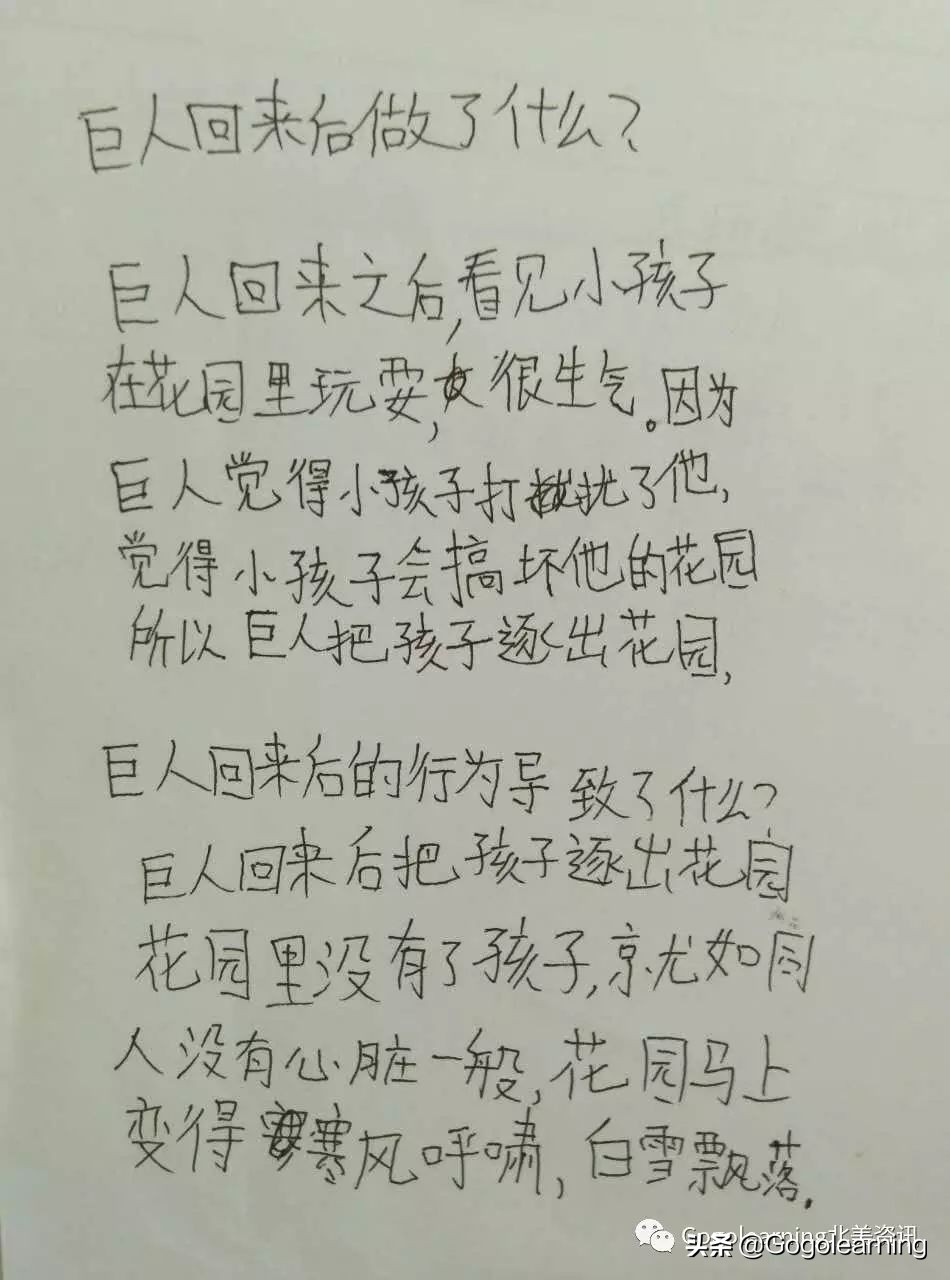 巨人回来后做了什么?
巨人回来之后,看见小孩子
在花园里玩耍,很生气。因为
巨人觉得小孩子打扰了他,
觉得小孩子会搞坏他的花园
所以巨人把孩子逐出花园,
巨人回来后的行为导致了什么?
巨人回来后把孩子逐出花园
花园里没有了孩子,就如同
人没有心脏一般,花园马上
变得寒风呼啸,白雪飘落.
Gogolearning北美资讯
头条@Gogolearning